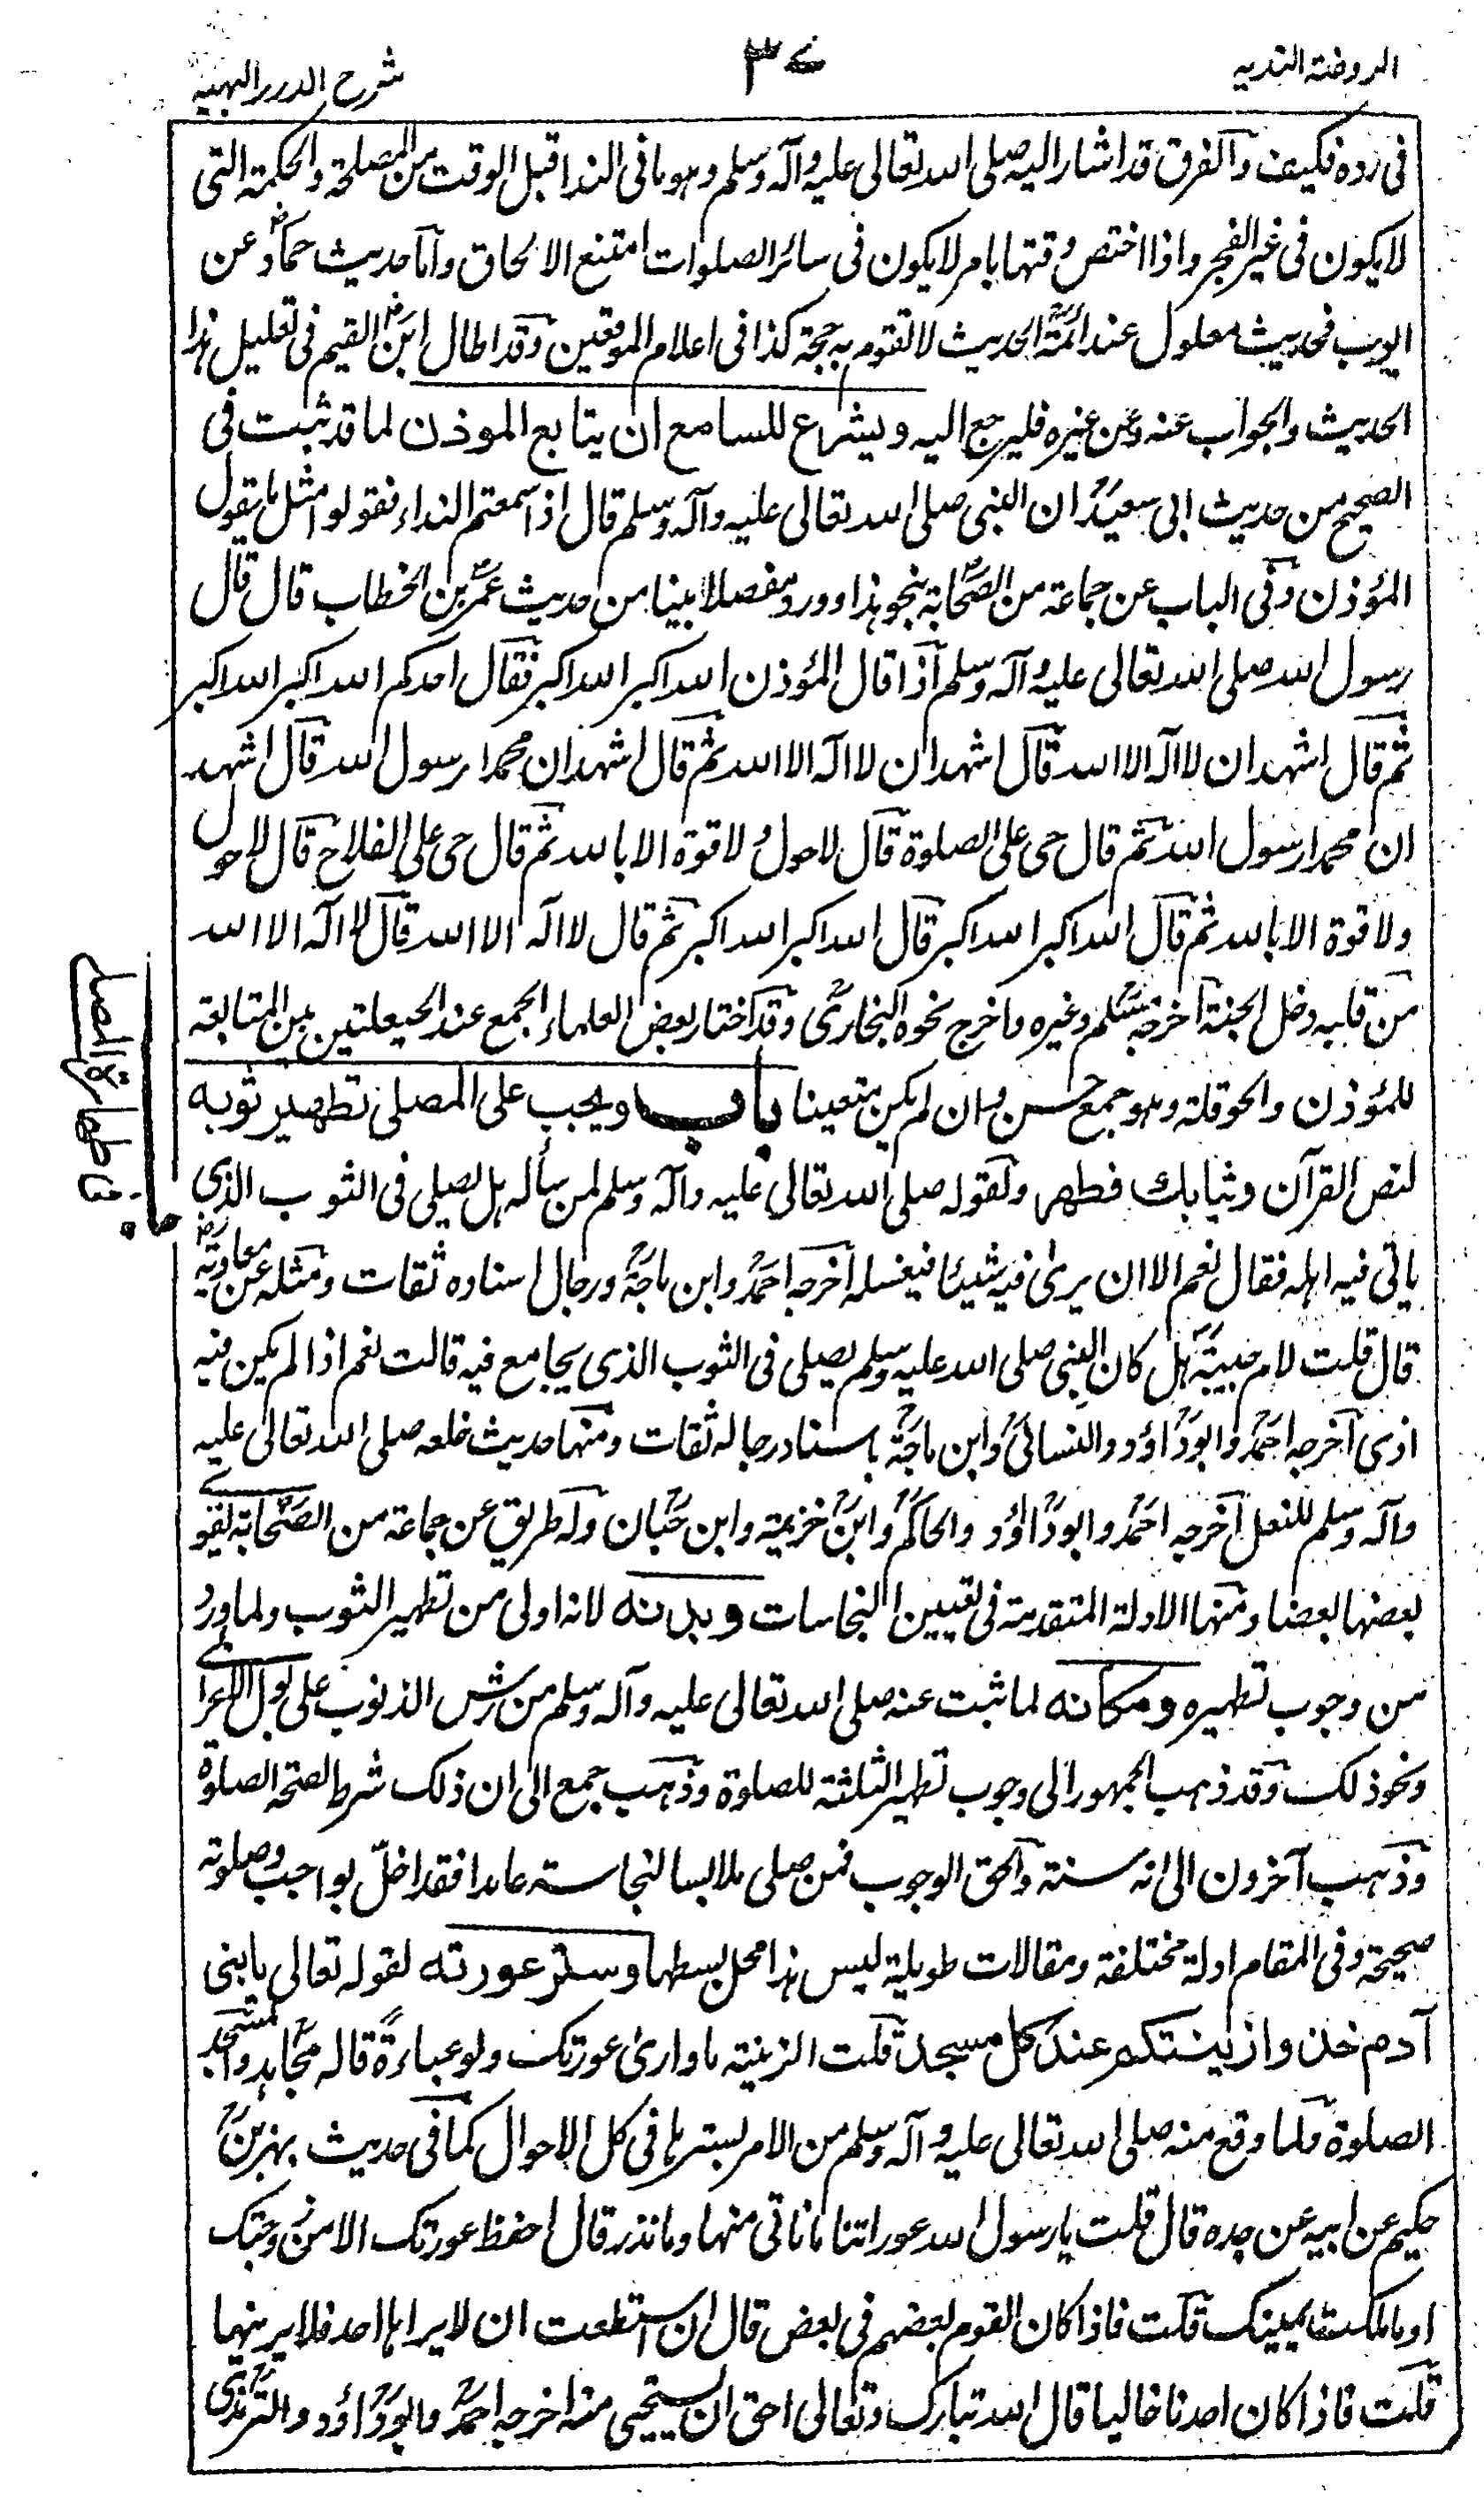 الروضة الندیه
٣٧
شرح الدرر البهیه
فی رده فکیف والفرق قد اشار الیه صلی الله تعالی علیه وآله وسلم وهو ما فی الندا قبل الوقت من المصلحة والحکمة التی
لا یکون فی غیر الفجر واذا اختص وقتها بامر لا یکون فی سائر الصلوات امتنع الالحاق واما حدیث حماد عن
ایوب فحدیث معلول عند ائمة الحدیث لا تقوم به حجة کذا فی اعلام الموقعین وقد اطال ابن القیم فی تعلیل هذا
الحدیث والجواب عنه وعن غیره فلیرجع الیه ویشرع للسامع ان یتابع الموذن لما قد ثبت فی
الصحیح من حدیث ابی سعید ان النبی صلی الله تعالی علیه وآله وسلم قال اذا سمعتم النداء فقولوا مثل ما یقول
المؤذن وفی الباب عن جماعة من الصحابة بنحو هذا وورد مفصلا مبینا من حدیث عمر بن الخطاب قال قال
رسول الله صلی الله تعالی علیه وآله وسلم اذا قال المؤذن الله اکبر الله اکبر فقال احدکم الله اکبر الله اکبر
ثم قال اشهد ان لا اله الا الله قال اشهد ان لا اله الا الله ثم قال اشهد ان محمدا رسول الله قال اشهد
ان محمدا رسول الله ثم قال حی علی الصلوة قال لا حول ولا قوة الا بالله ثم قال حی علی الفلاح قال لا حول
ولا قوة الا بالله ثم قال الله اکبر الله اکبر قال الله اکبر الله اکبر ثم قال لا اله الا الله قال لا اله الا الله
من قلبه دخل الجنة اخرجه مسلم وغیره واخرج نحوه البخاری وقد اختار بعض العلماء الجمع عند الحیعلتین بین المتابعة
للمؤذن والحوقلة وهو جمع حسن وان لم یکن متعینا باب ویجب علی المصلی تطهیر ثوبه
لنص القرآن وثیابک فطهر ولقوله صلی الله تعالی علیه وآله وسلم لمن سأله هل یصلی فی الثوب الذی
یاتی فیه اهله فقال نعم الا ان یری فیه شیئا فیغسله اخرجه احمد وابن ماجة ورجال اسناده ثقات ومثله عن معاویة
قال قلت لام حبیبة هل کان النبی صلی الله علیه وسلم یصلی فی الثوب الذی یجامع فیه قالت نعم اذا لم یکن فیه
اذی اخرجه احمد وابو داؤد والنسائی وابن ماجة باسناد رجاله ثقات ومنها حدیث خلعه صلی الله تعالی علیه
وآله وسلم للنعل اخرجه احمد وابو داؤد والحاکم وابن خزیمة وابن حبان وله طریق عن جماعة من الصحابة یقوی
بعضها بعضا ومنها الادلة المتقدمة فی تعیین النجاسات وبدنه لانه اولی من تطهیر الثوب ولما ورد
من وجوب تطهیره ومکانه لما ثبت عنه صلی الله تعالی علیه وآله وسلم من رش الذنوب علی بول الاعرابی
ونحو ذلک وقد ذهب الجمهور الی وجوب تطهیر الثلثة للصلوة وذهب جمع الی ان ذلک شرط لصحة الصلوة
وذهب آخرون الی انه سنة والحق الوجوب فمن صلی ملابسا لنجاسة عامدا فقد اخل بواجب وصلوته
صحیحة وفی المقام ادلة مختلفة ومقالات طویلة لیس هذا محل بسطها وستر عورته لقوله تعالی یا بنی
آدم خذوا زینتکم عند کل مسجد قلت الزینة ما واری عورتک ولو عباءة قاله مجاهد والمسجد
الصلوة ولما وقع منه صلی الله تعالی علیه وآله وسلم من الامر بسترها فی کل الاحوال کما فی حدیث بهز بن
حکیم عن ابیه عن جده قال قلت یا رسول الله عوراتنا ما ناتی منها وما نذر قال احفظ عورتک الا من زوجتک
او ما ملکت یمینک قلت فاذا کان القوم بعضهم فی بعض قال ان استطعت ان لا یراها احد فلا یرینها
قلت فاذا کان احدنا خالیا قال الله تبارک وتعالی احق ان یستحیی منه اخرجه احمد وابو داؤد والترمذی